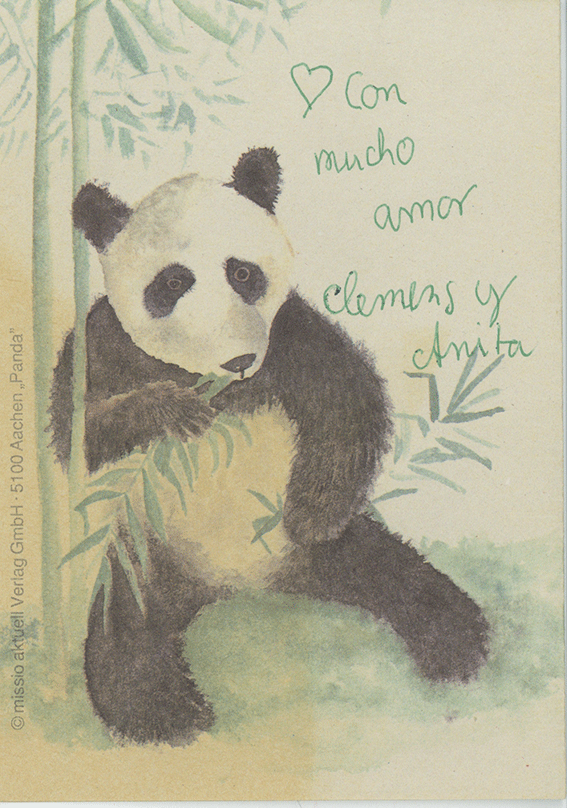 ♡ Con
mucho
amor
Clemens y
Anita
© missio aktuell Verlag GmbH · 5100 Aachen „Panda”